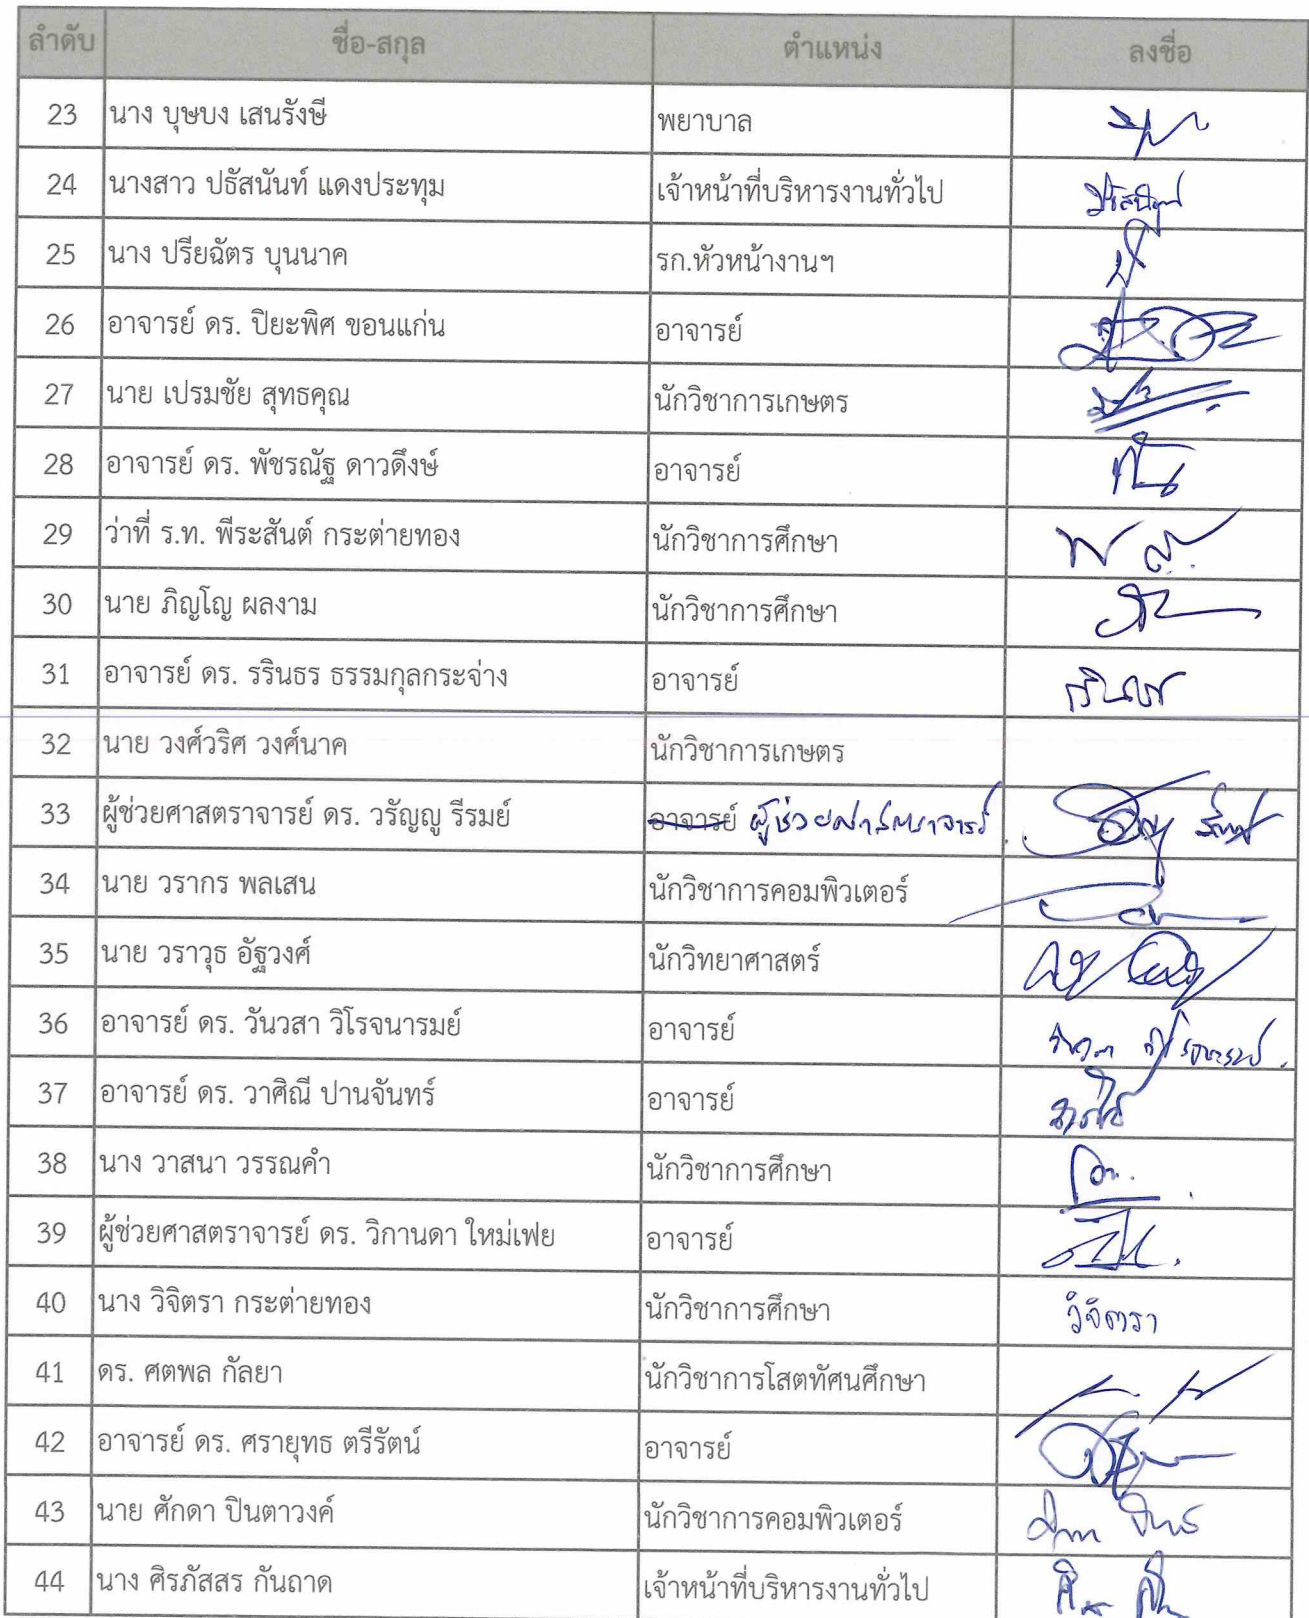 ลำดับ ชื่อ-สกุล ตำแหน่ง ลงชื่อ
23 นาง บุษบง เสนรังษี พยาบาล
24 นางสาว ปธัสนันท์ แดงประทุม เจ้าหน้าที่บริหารงานทั่วไป
25 นาง ปรียฉัตร บุนนาค รก.หัวหน้างานฯ
26 อาจารย์ ดร. ปิยะพิศ ขอนแก่น อาจารย์
27 นาย เปรมชัย สุทธคุณ นักวิชาการเกษตร
28 อาจารย์ ดร. พัชรณัฐ ดาวดึงษ์ อาจารย์
29 ว่าที่ ร.ท. พีระสันต์ กระต่ายทอง นักวิชาการศึกษา
30 นาย ภิญโญ ผลงาม นักวิชาการศึกษา
31 อาจารย์ ดร. รรินธร ธรรมกุลกระจ่าง อาจารย์ รรินธร
32 นาย วงศ์วริศ วงศ์นาค นักวิชาการเกษตร
33 ผู้ช่วยศาสตราจารย์ ดร. วรัญญู รีรมย์ อาจารย์ ผู้ช่วยศาสตราจารย์
34 นาย วรากร พลเสน นักวิชาการคอมพิวเตอร์
35 นาย วราวุธ อัฐวงศ์ นักวิทยาศาสตร์
36 อาจารย์ ดร. วันวสา วิโรจนารมย์ อาจารย์
37 อาจารย์ ดร. วาศิณี ปานจันทร์ อาจารย์
38 นาง วาสนา วรรณคำ นักวิชาการศึกษา
39 ผู้ช่วยศาสตราจารย์ ดร. วิกานดา ใหม่เฟย อาจารย์
40 นาง วิจิตรา กระต่ายทอง นักวิชาการศึกษา วิจิตรา
41 ดร. ศตพล กัลยา นักวิชาการโสตทัศนศึกษา
42 อาจารย์ ดร. ศรายุทธ ตรีรัตน์ อาจารย์
43 นาย ศักดา ปินตาวงค์ นักวิชาการคอมพิวเตอร์
44 นาง ศิรภัสสร กันถาด เจ้าหน้าที่บริหารงานทั่วไป